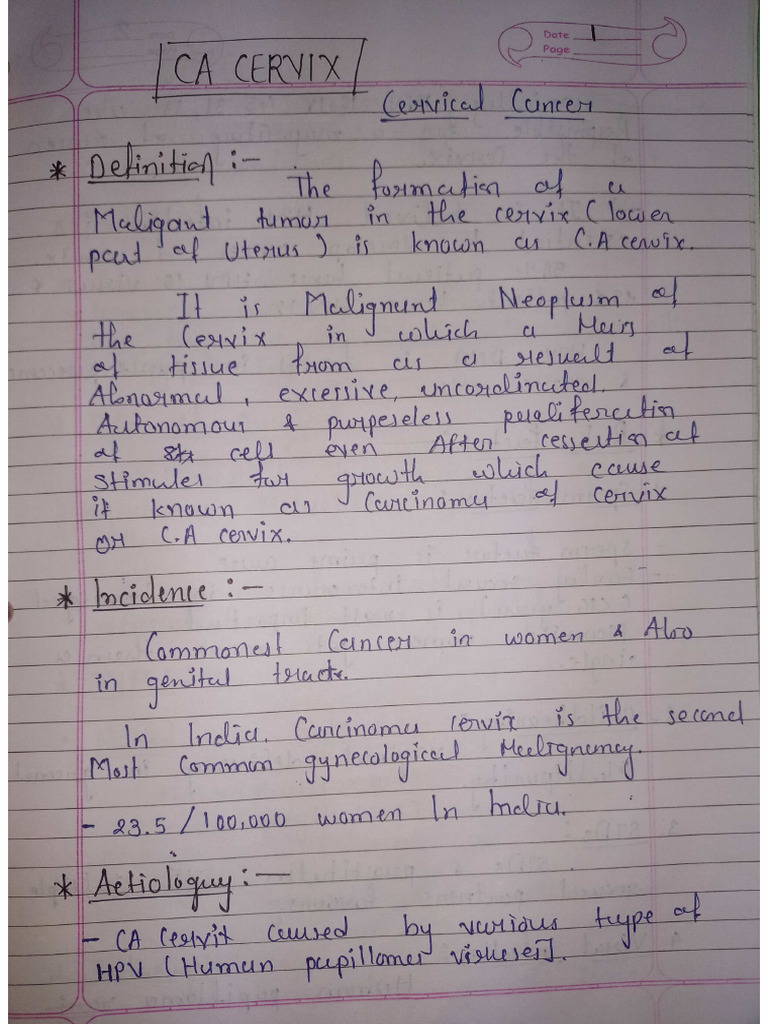 Date 1
Page
CA CERVIX
Cervical Cancer
* Definition :-
The formation of a
Maligant tumor in the cervix ( lower
part of Uterus ) is known as C.A cervix.
It is Malignant Neoplasm of
the Cervix in which a Mass
of tissue from as a resuælt of
Abnormal, excessive, uncordinated.
Autonomous & purpeseless peraliferation
of cell even After cessertion of
stimules for growth which cause
it known as Carcinoma of cervix
or C.A cervix.
* Incidence :-
Commonest Cancer in women & Also
in genital tracts.
In India. Carcinoma cervix is the second
Most common gynecological Malignancy.
- 23.5 / 100,000 women In India.
* Aetiologuy :-
- CA Cervix caused by various type of
HPV (Human papillomer viruses].